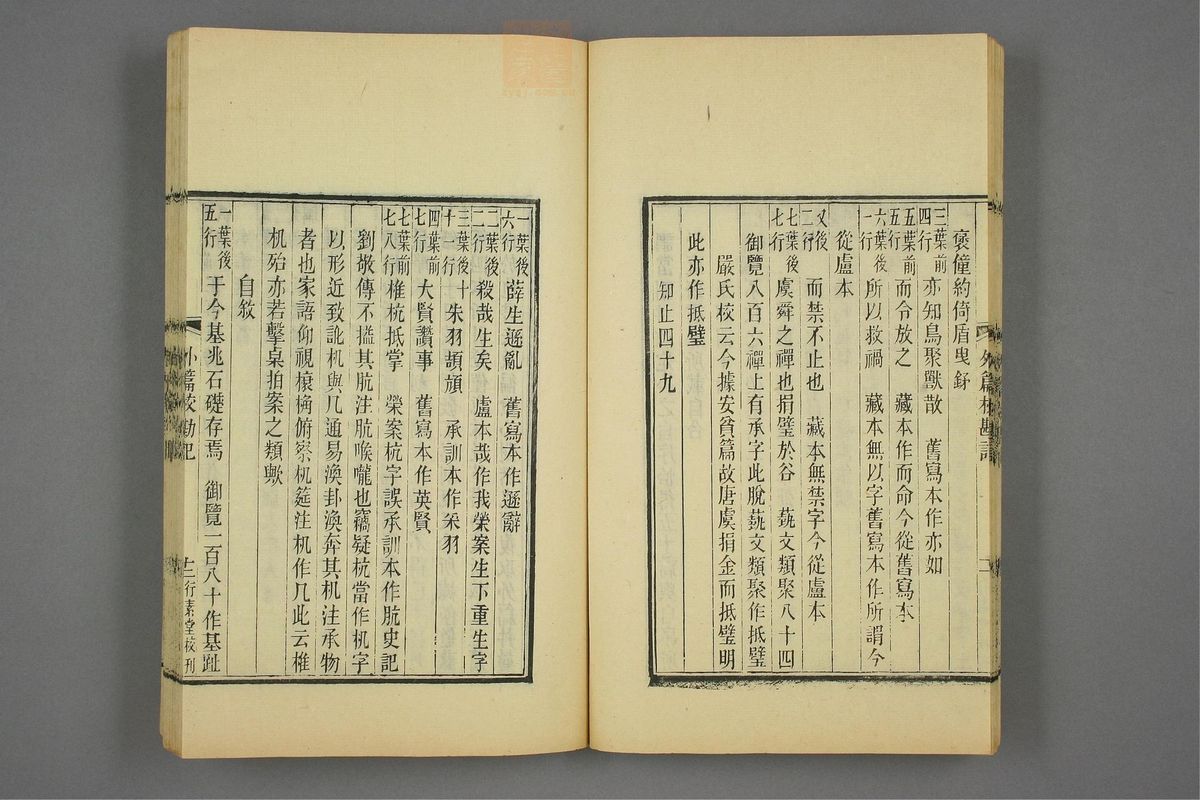 襃僮約倚盾曳鉌
三葉前四行 亦知鳥聚獸散 舊寫本作亦如
五葉前五行 而令放之 藏本作而命今從舊寫本
六葉後一行 所以救禍 藏本無以字舊寫本作所謂今
從盧本
又後二行 而禁不止也 藏本無禁字今從盧本
七葉後七行 虞舜之禪也捐璧於谷 蓺文類聚八十四
御覽八百六禪上有承字此脫蓺文類聚作抵璧
嚴氏校云今據安貧篇故唐虞捐金而抵璧明
此亦作抵璧
知止四十九
外篇校勘記
一葉後六行 薛生遜亂 舊寫本作遜辭
二葉後二行 殺哉生矣 盧本哉作我榮案生下重生字
三葉後十一行 朱羽頡頏 承訓本作采羽
四葉前七行 大賢讚事 舊寫本作英賢
七葉前七八行 椎杭抵掌 榮案杭字誤承訓本作肮史記
劉敬傳不搤其肮注肮喉嚨也竊疑杭當作机字
以形近致訛机與几通易渙卦渙奔其机注承物
者也家語仰視榱桷俯察机筵注机作几此云椎
机殆亦若擊桌拍案之類歟
自敘
一葉後五行 于今基兆石礎存焉 御覽一百八十作基趾
外篇校勘記
十二
行素堂校刊